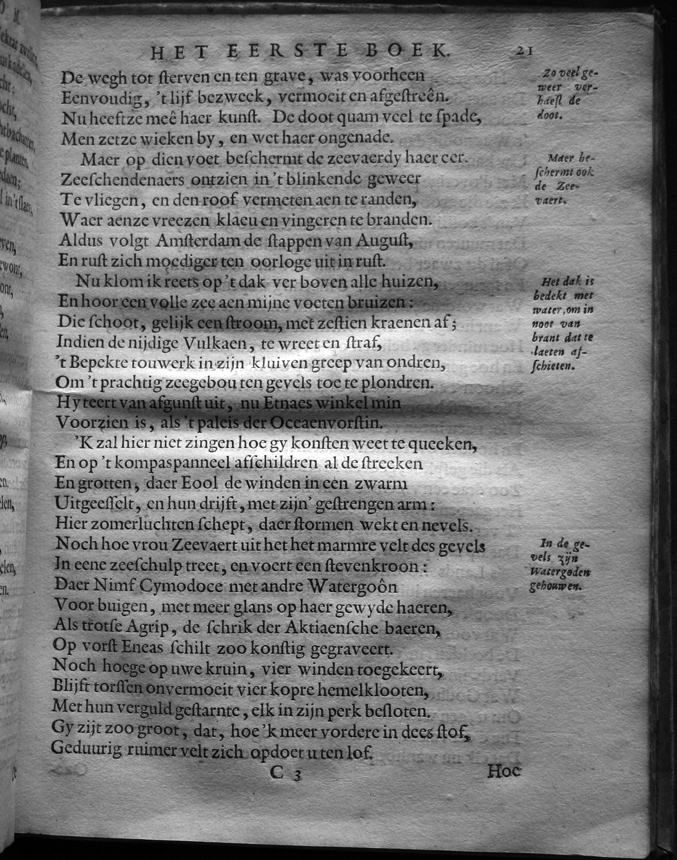 HET EERSTE BOEK. 21
De wegh tot ſterven en ten grave, was voorheen
Eenvoudig, 't lijf bezweek, vermoeit en afgeſtreên.
Nu heeftze meê haer kunſt. De doot quam veel te ſpade,
Men zetze wieken by, en wet haer ongenade.
Maer op dien voet beſchermt de zeevaerdy haer eer.
Zeeſchendenaers ontzien in 't blinkende geweer
Te vliegen, en den roof vermeten aen te randen,
Waer aenze vreezen klaeu en vingeren te branden.
Aldus volgt Amſterdam de ſtappen van Auguſt,
En ruſt zich moediger ten oorloge uit in ruſt.
Nu klom ik reets op 't dak ver boven alle huizen,
En hoor een volle zee aen mijne voeten bruizen:
Die ſchoot, gelijk een ſtroom, met zeſtien kraenen af;
Indien de nijdige Vulkaen, te wreet en ſtraf,
't Bepekte touwerk in zijn kluiven greep van ondren,
Om 't prachtig zeegebou ten gevels toe te plondren.
Hy teert van afgunſt uit, nu Etnaes winkel min
Voorzien is, als 't paleis der Oceaenvorſtin.
'K zal hier niet zingen hoe gy konſten weet te queeken,
En op 't kompaspanneel afſchildren al de ſtreeken
En grotten, daer Eool de winden in een zwarm
Uitgeeſſelt, en hun drijft, met zijn' geſtrengen arm:
Hier zomerluchten ſchept, daer ſtormen wekt en nevels.
Noch hoe vrou Zeevaert uit het het marmre velt des gevels
In eene zeeſchulp treet, en voert een ſtevenkroon:
Daer Nimf Cymodoce met andre Watergoôn
Voor buigen, met meer glans op haer gewyde haeren,
Als trotſe Agrip, de ſchrik der Aktiaenſche baeren,
Op vorſt Eneas ſchilt zoo konſtig gegraveert.
Noch hoege op uwe kruin, vier winden toegekeert,
Blijft torſſen onvermoeit vier kopre hemelklooten,
Met hun verguld geſtarnte, elk in zijn perk beſloten.
Gy zijt zoo groot, dat, hoe 'k meer vordere in dees ſtof,
Geduurig ruimer velt zich opdoet u ten lof.
C 3 Hoe
Zo veel ge-
weer ver-
haeſt de
doot.
Maer be-
ſchermt ook
de Zee-
vaert.
Het dak is
bedekt met
water, om in
noot van
brant dat te
laeten af-
ſchieten.
In de ge-
vels zijn
Watergoden
gehouwen.